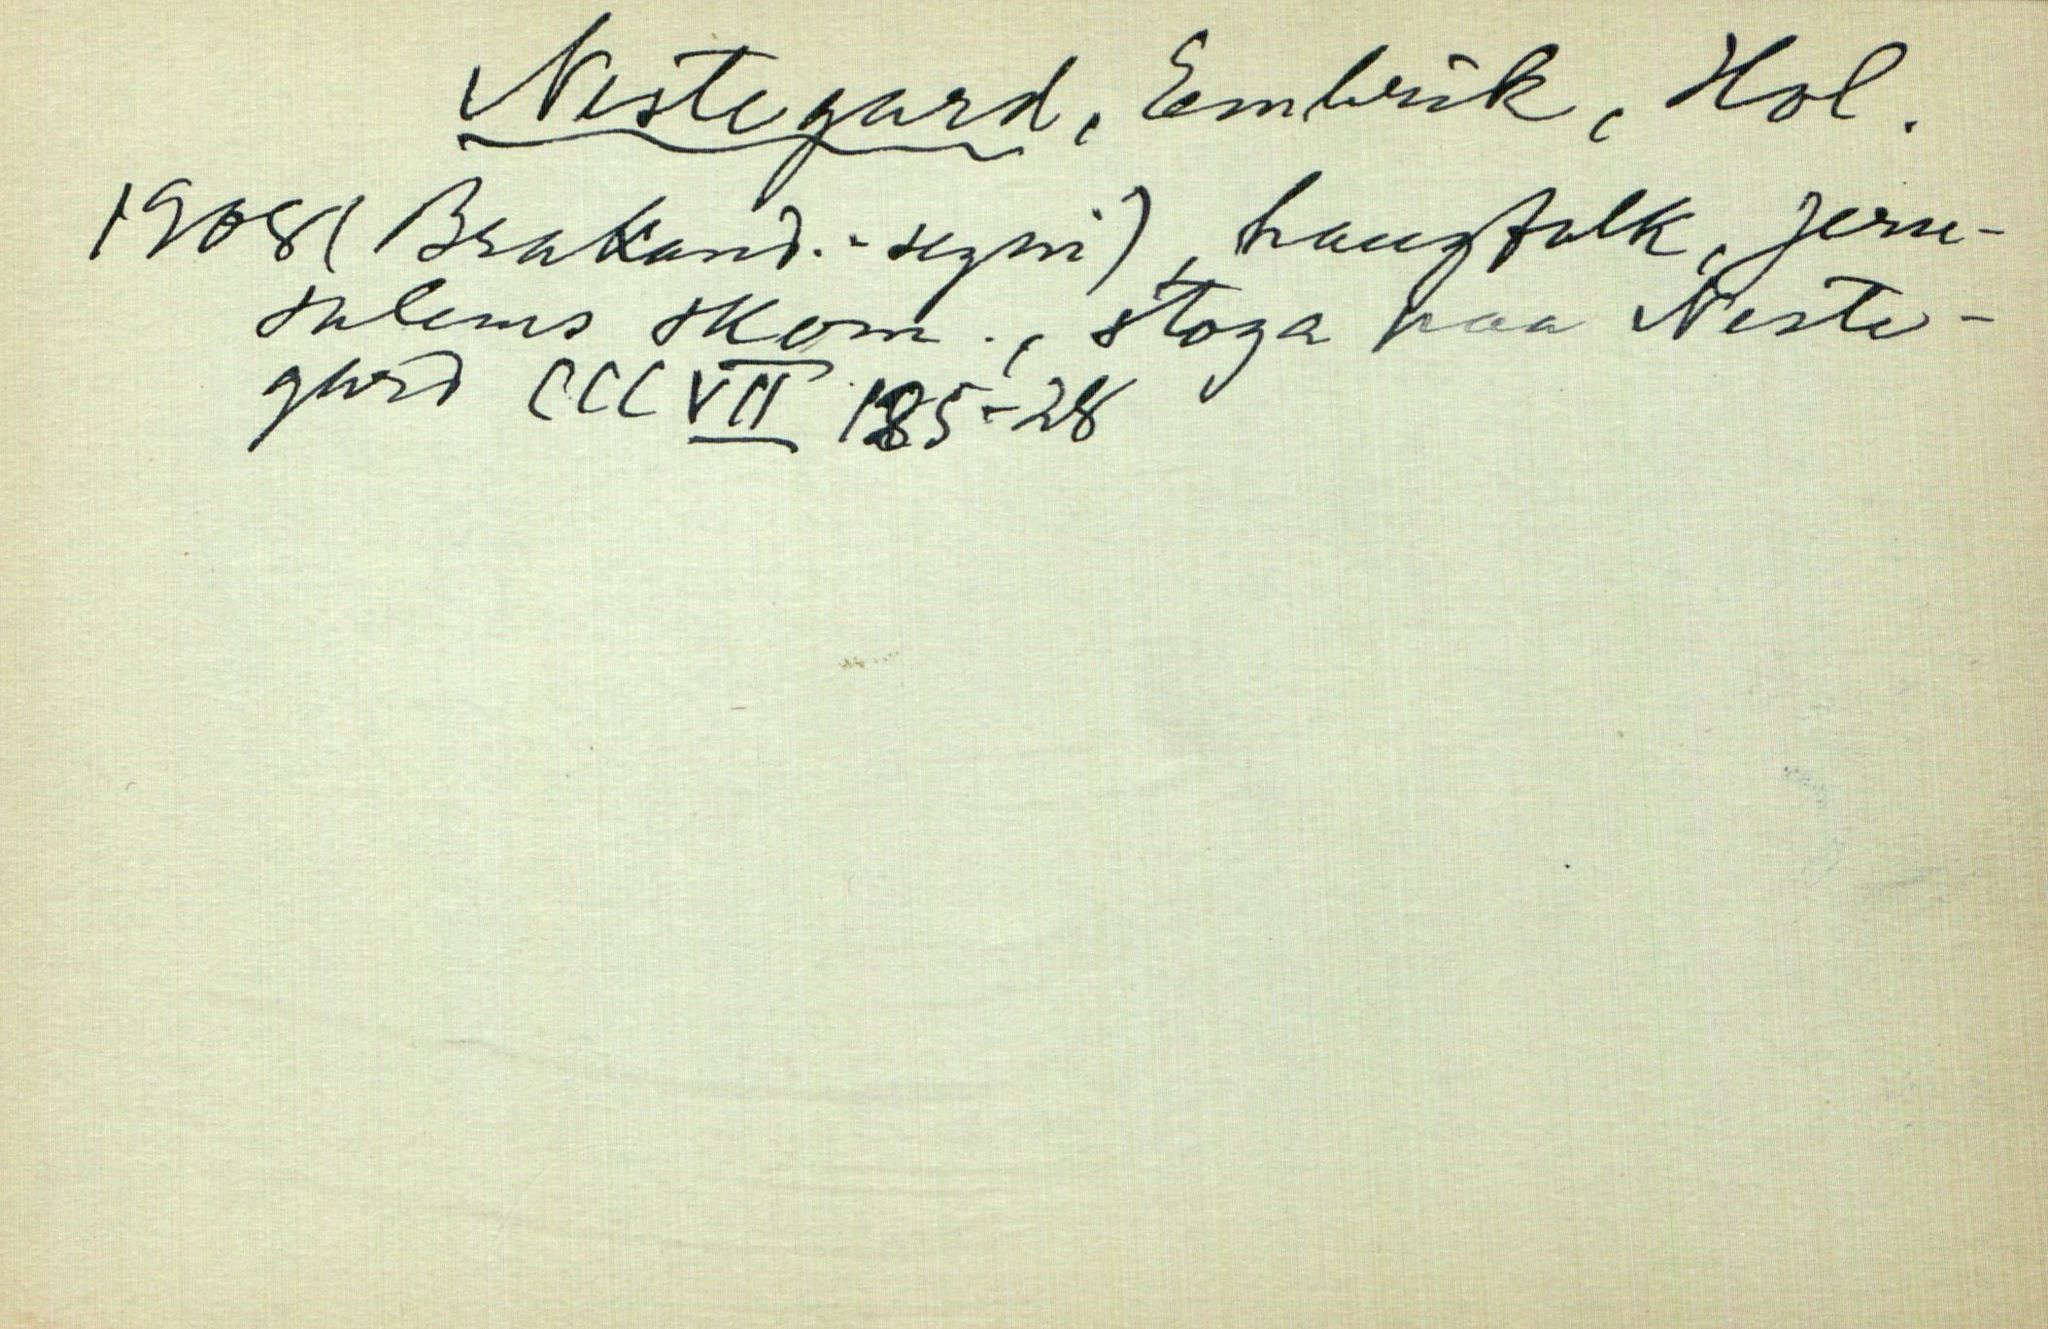 Nestegard, Embrik, Hol.
1908 (Brakand.-segni), haugfolk, Jeru-
salems skom., stoga paa Neste-
gard CCCVII 185-28